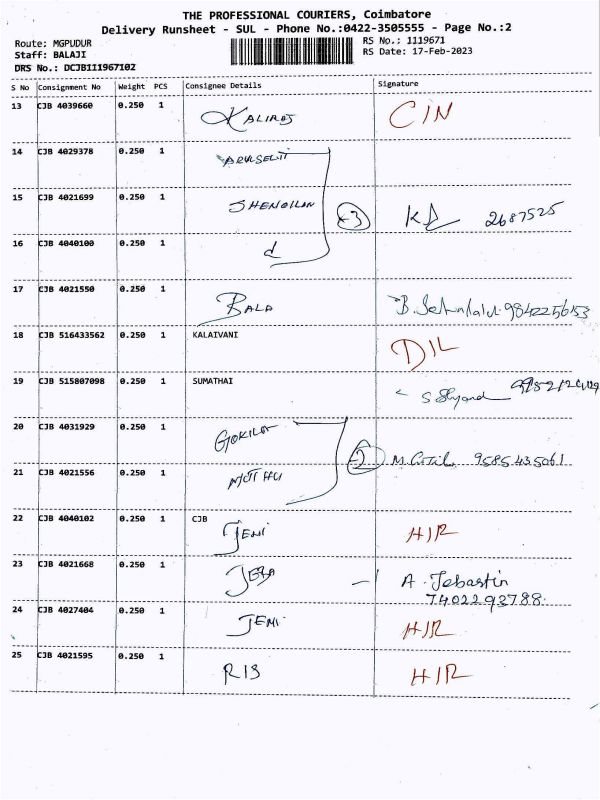 THE PROFESSIONAL COURIERS, Coimbatore
Delivery Runsheet - SUL - Phone No.:0422-3505555 - Page No.:2
Route: MGPUDUR
RS No.: 1119671
Staff: BALAJI
RS Date: 17-Feb-2023
DRS No.: DCJB111967102
S No Consignment No Weight PCS Consignee Details Signature
13 CJB 4039660 0.250 1 KALIRAJ CIN
14 CJB 4029378 0.250 1 ARULSELVI
15 CJB 4021699 0.250 1 3 2687525
16 CJB 4040100 0.250 1 d
17 CJB 4021550 0.250 1 BALA B. 9842256153
18 CJB 516433562 0.250 1 KALAIVANI D/L
19 CJB 515807098 0.250 1 SUMATHAI
20 CJB 4031929 0.250 1 GOKILA
21 CJB 4021556 0.250 1 MUTHU 2 9585435061
22 CJB 4040102 0.250 1 CJB
JEMI H/R
23 CJB 4021668 0.250 1 A. Jebastin
7402293788
24 CJB 4027404 0.250 1 JEMI H/R
25 CJB 4021595 0.250 1 H/R